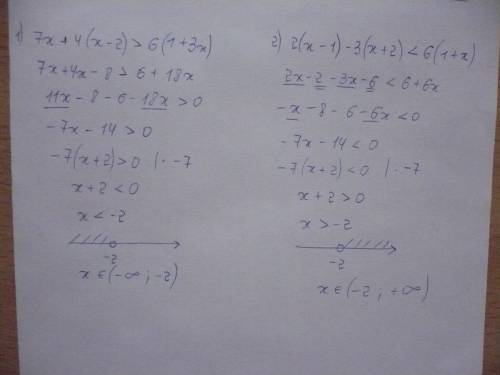 1) 7x + 4(x-2) > 6(1+3x)
7x+4x-8 > 6 + 18x
11x - 8 - 6 - 18x > 0
-7x - 14 > 0
-7(x+2) > 0 | · -7
x+2 < 0
x < -2
-2
x ∈ (-∞ ; -2)
2) 2(x-1) - 3(x+2) < 6(1+x)
2x - 2 - 3x - 6 < 6 + 6x
-x - 8 - 6 - 6x < 0
-7x - 14 < 0
-7(x+2) < 0 | · -7
x + 2 > 0
x > -2
-2
x ∈ (-2 ; +∞)